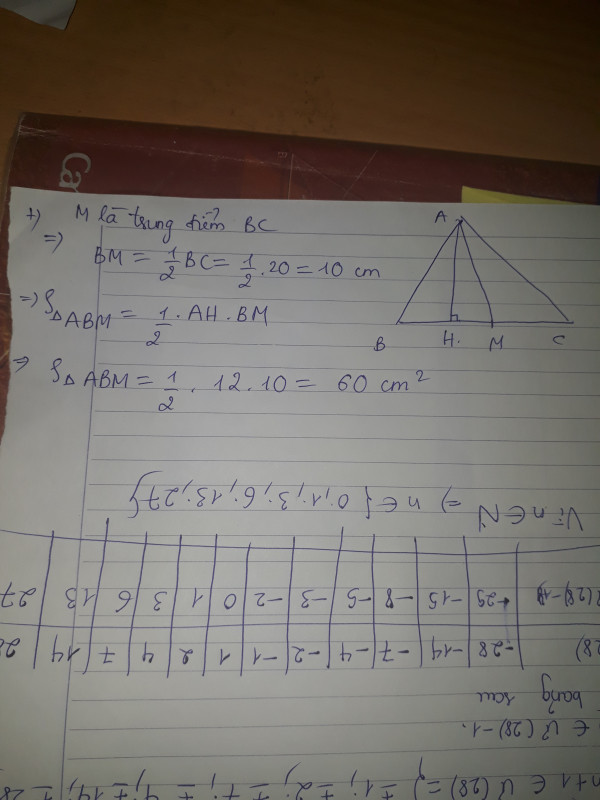 Ca
+) M là trung điểm BC
=> BM = 1/2 BC = 1/2 . 20 = 10 cm
=> S△ABM = 1/2 . AH . BM
=> S△ABM = 1/2 . 12 . 10 = 60 cm²
A
B H. M C
n+1 ∈ Ư(28) = { ±1; ±2; ±7; ±4; ±14; ±28
∈ Ư(28)-1.
bảng sau
28) -28 -14 -7 -4 -2 -1 1 2 4 7 14 28
(28)-1 -29 -15 -8 -5 -3 -2 0 1 3 6 13 27
Vì n∈N => n∈{0;1;3;6;13;27}